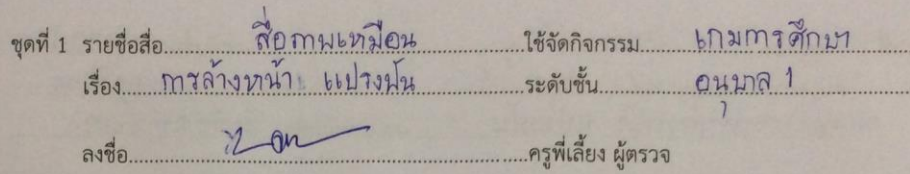 ชุดที่ 1 รายชื่อสื่อ.....สื่อภาพเหมือน.....ใช้จัดกิจกรรม.....เกมการศึกษา
เรื่อง.....การล้างหน้า แปรงฟัน.....ระดับชั้น.....อนุบาล 1
ลงชื่อ..........ครูพี่เลี้ยง ผู้ตรวจ